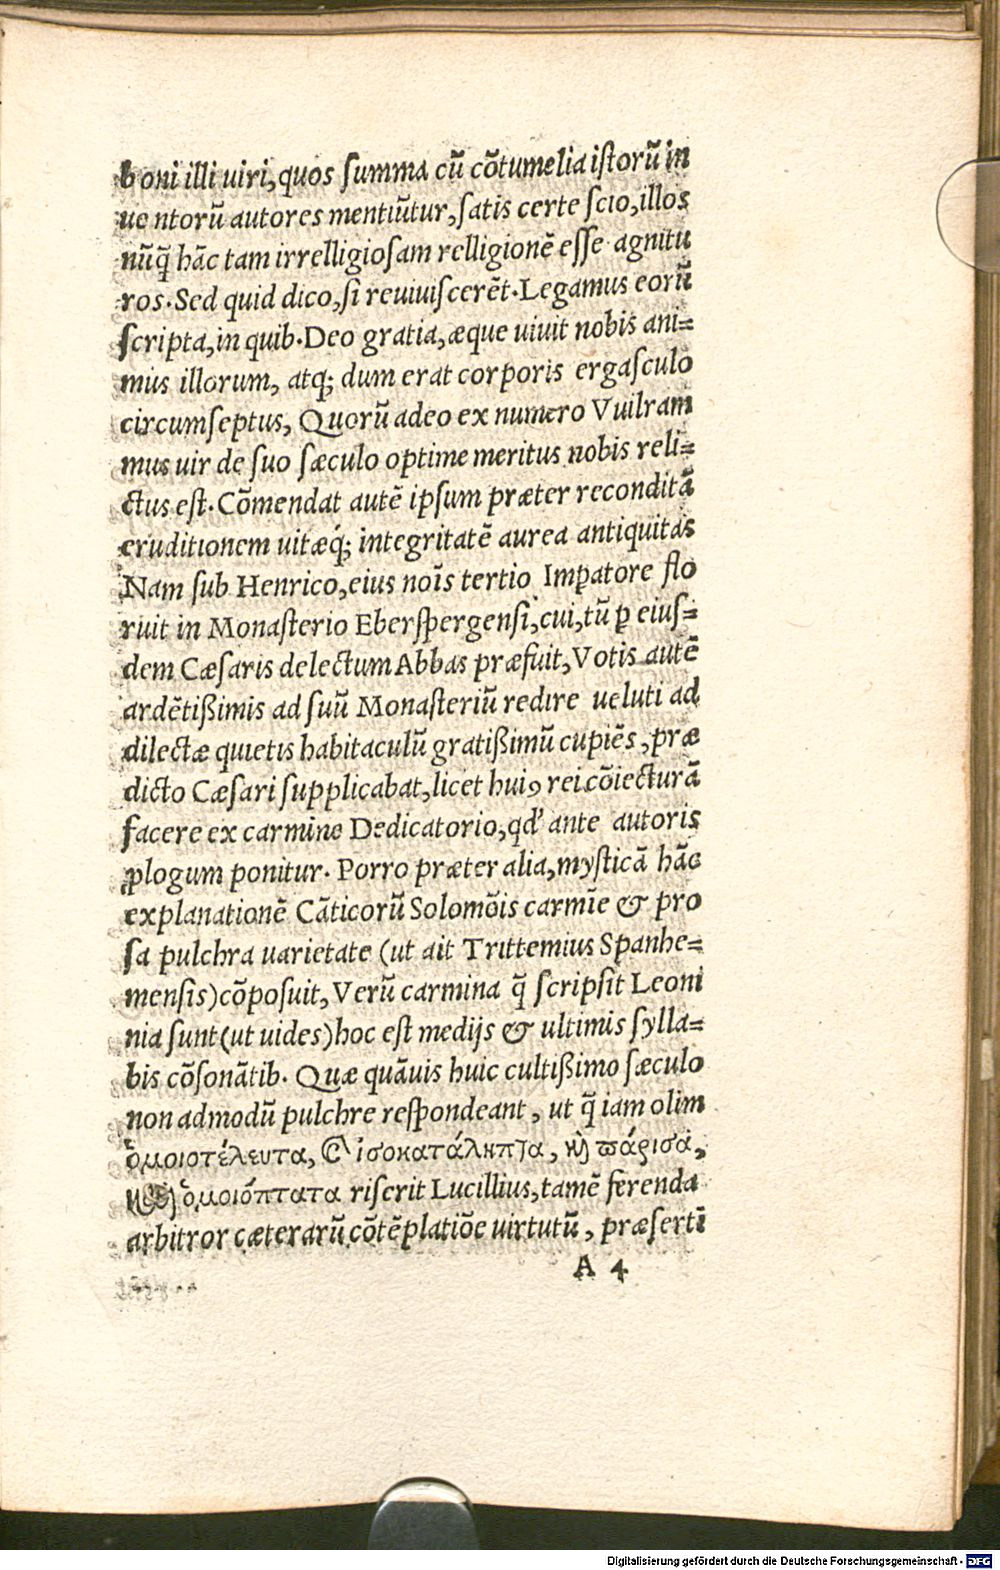 boni illi uiri, quos ſumma cũ cõtumelia iſtorũ in
uentorũ autores mentiũtur, ſatis certe ſcio, illos
nũq̃ hãc tam irrelligioſam relligionẽ eſſe agnitu
ros. Sed quid dico, ſi reuiuiſcerẽt. Legamus eorũ
ſcripta, in quib. Deo gratia, æque uiuit nobis ani=
mus illorum, atq; dum erat corporis ergaſculo
circumſeptus, Quorũ adeo ex numero Vuilram
mus uir de ſuo ſæculo optime meritus nobis reli=
ctus eſt. Cõmendat autẽ ipſum præter reconditã
eruditionem uitæq́; integritatẽ aurea antiquitas
Nam ſub Henrico, eius noĩs tertio Imꝑatore flo
ruit in Monaſterio Eberſpergenſi, cui, tũ ꝑ eiuſ=
dem Cæſaris delectum Abbas præfuit, Votis autẽ
ardẽtißimis ad ſuũ Monaſteriũ redire ueluti ad
dilectæ quietis habitaculũ gratißimũ cupiẽs, præ
dicto Cæſari ſupplicabat, licet huiꝰ rei cõiecturã
facere ex carmine Dedicatorio, qd' ante autoris
ꝓlogum ponitur. Porro præter alia, myſticã hãc
explanationẽ Cãticorũ Solomõis carmĩe & pro
ſa pulchra uarietate (ut ait Trittemius Spanhe=
menſis) cõpoſuit, Verũ carmina q̃ ſcripſit Leoni
nia ſunt (ut uides) hoc eſt medijs & ultimis ſylla=
bis cõſonãtib. Quæ quãuis huic cultißimo ſæculo
non admodũ pulchre reſpondeant, ut q̃ iam olim
ὁμοιοτέλευτα, ἰσοκατάληπτα, καὶ πάρισα,
καὶ ὁμοιόπτατα riſerit Lucillius, tamẽ ferenda
arbitror cæterarũ cõtẽplatiõe uirtutũ, præſertĩ
A 4
Digitalisierung gefördert durch die Deutsche Forschungsgemeinschaft - DFG